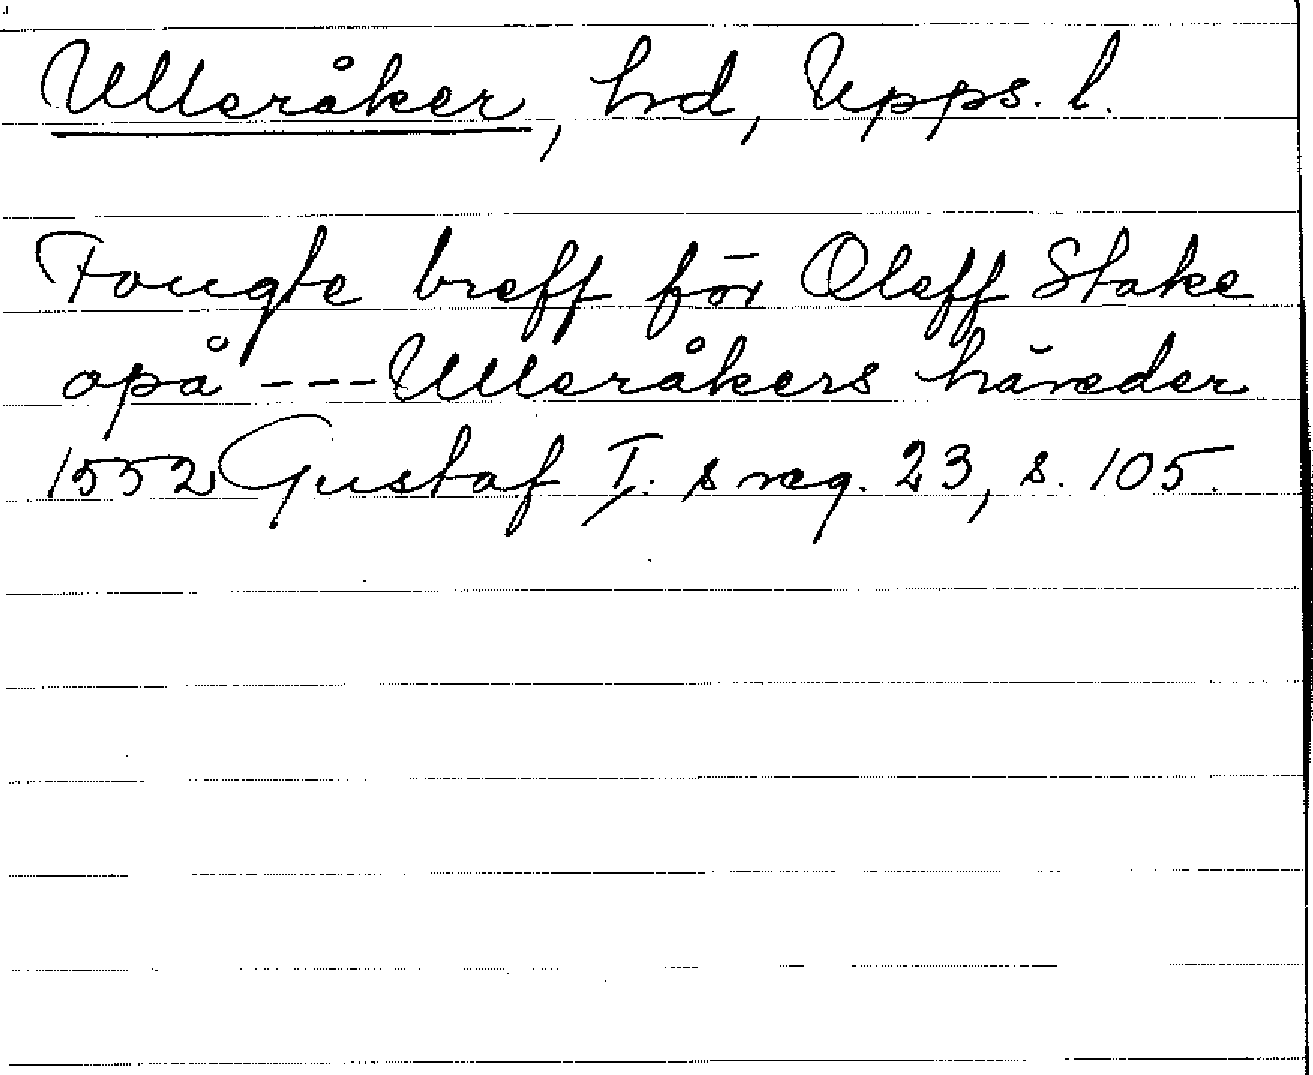 Ulleråker, hd, Upps. l.
Fougte breff för Oleff Stake
opå --- Ulleråkers häreder
1552 Gustaf I:s reg. 23, s. 105.